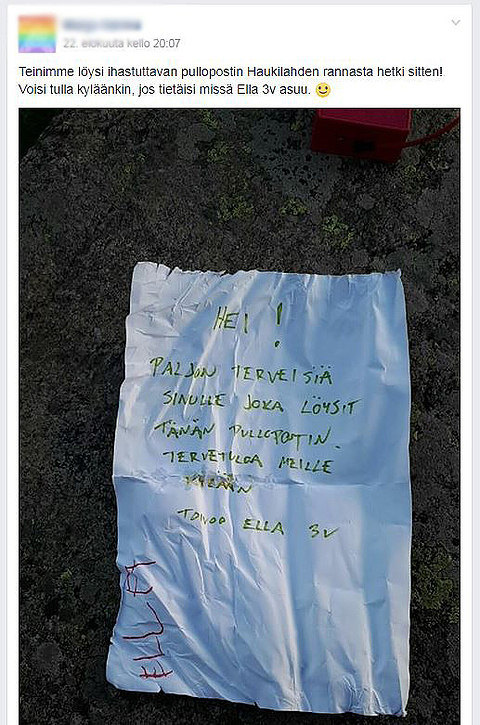 22. elokuuta kello 20:07
Teinimme löysi ihastuttavan pullopostin Haukilahden rannasta hetki sitten!
Voisi tulla kyläänkin, jos tietäisi missä Ella 3v asuu.
HEI !
PALJON TERVEISIÄ
SINULLE JOKA LÖYSIT
TÄNÄN PULLOPOTIN.
TERVETULOA MEILLE
KYLÄÄN
TOIVOO ELLA 3V
ELLA